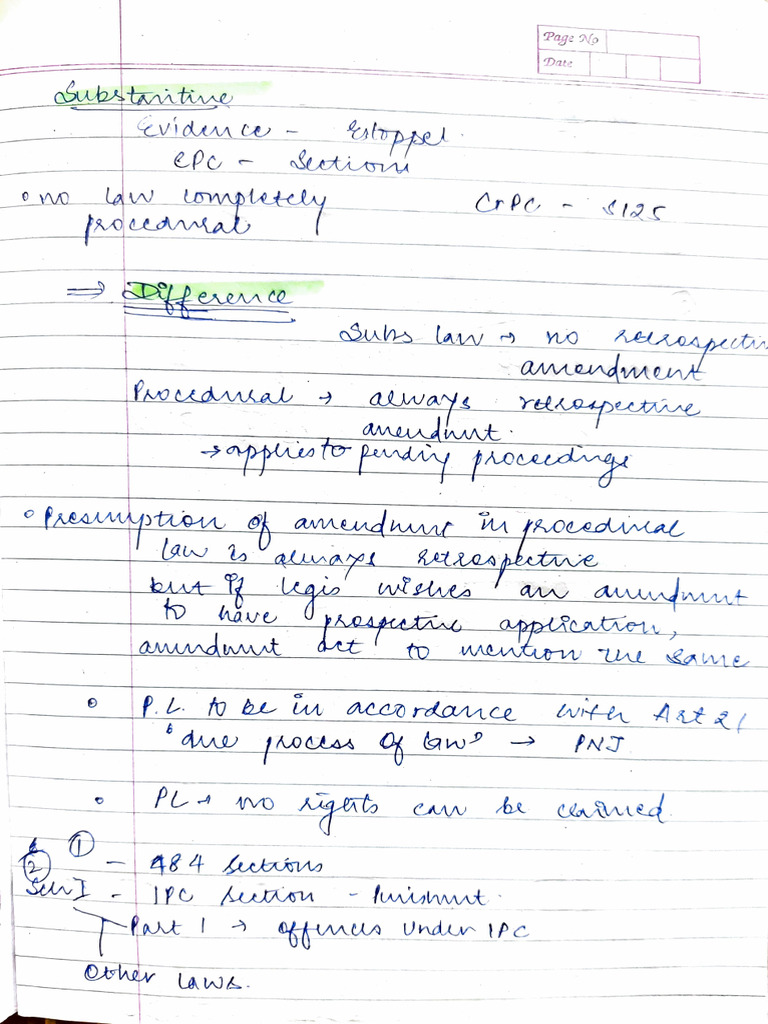 Page No
Date
Substantive
Evidence - Estoppel.
CPC - Sections
• no law completely CrPC - S125
procedural
⇒ Difference
Subs law → no retrospectiv
amendment
Procedural → always retrospective
amendmnt.
→ applies to pending proceedings
• Presumption of amendmnt in procedural
law is always retrospective
but if legis wishes an amendmnt
to have prospective application,
amendmnt act to mention the same
• P.L. to be in accordance with Art 21
"due process of law" → PNJ
• PL → no rights can be claimed
① - 484 sections
②
Sch I - IPC section - Punishmnt.
Part 1 → offences under IPC
Other laws.